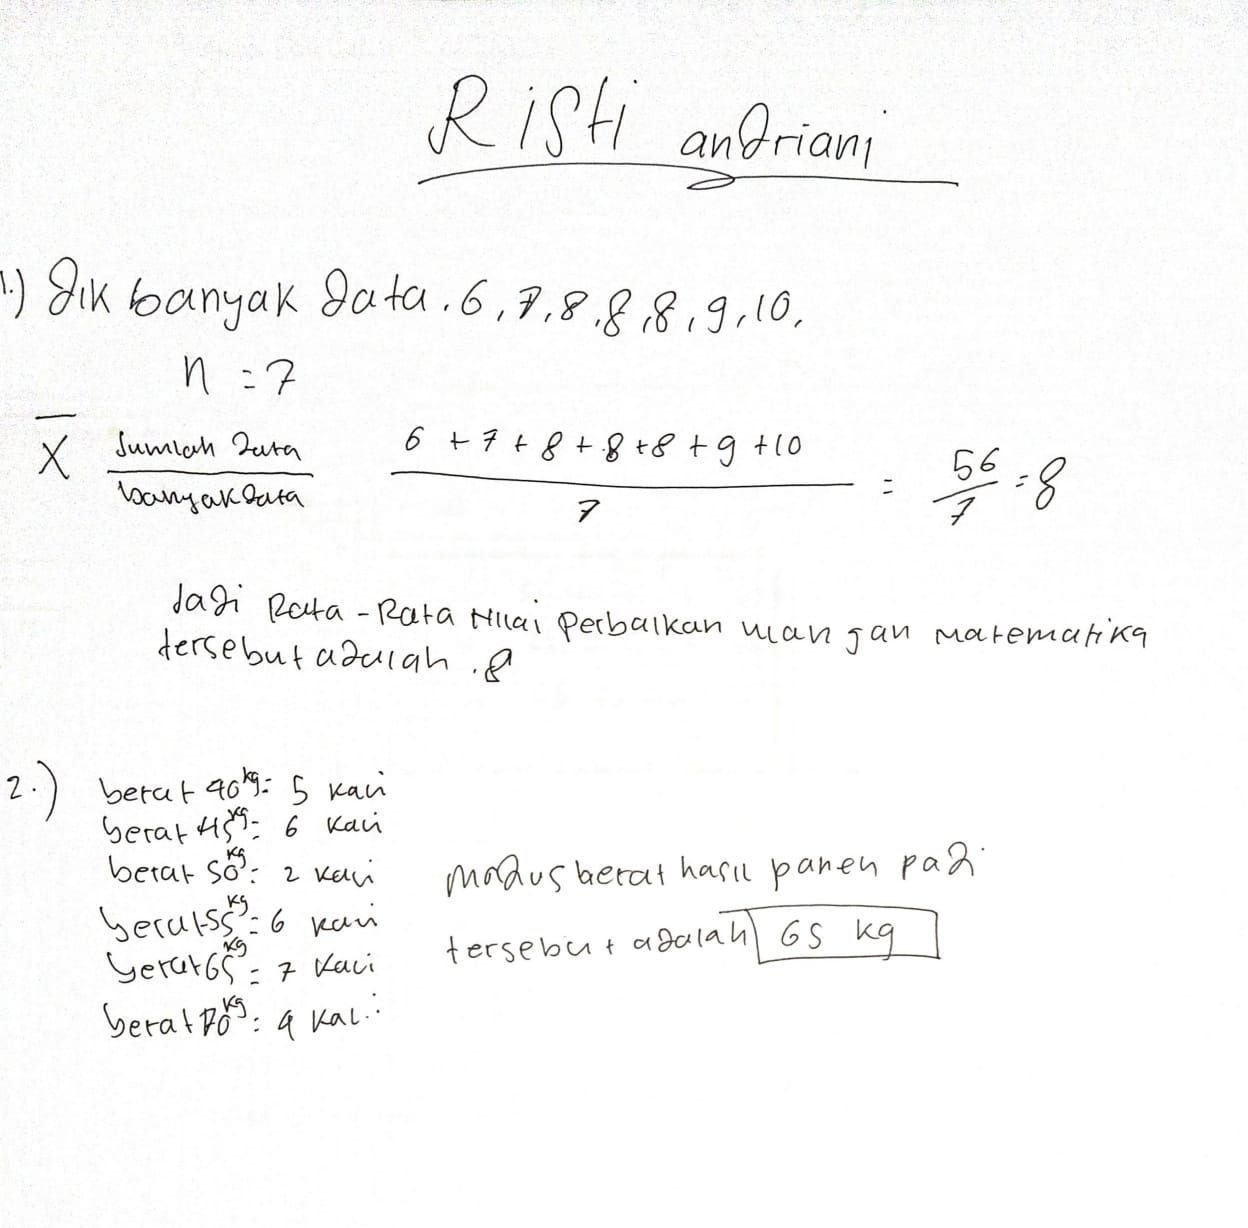 Risti andriani
1.) dik banyak data. 6, 7, 8, 8, 8, 9, 10,
n = 7
X̄ Jumlah data / banyak data 6 + 7 + 8 + 8 + 8 + 9 + 10 / 7 = 56/7 = 8
Jadi Rata - Rata Nilai Perbaikan ulangan Matematika
tersebut adalah . 8
2.) berat 40 kg = 5 kali
berat 45 kg = 6 kali
berat 50 kg : 2 kali
berat 55 kg = 6 kali
berat 65 kg = 7 kali
berat 70 kg : 4 kali
modus berat hasil panen padi
tersebut adalah 65 kg